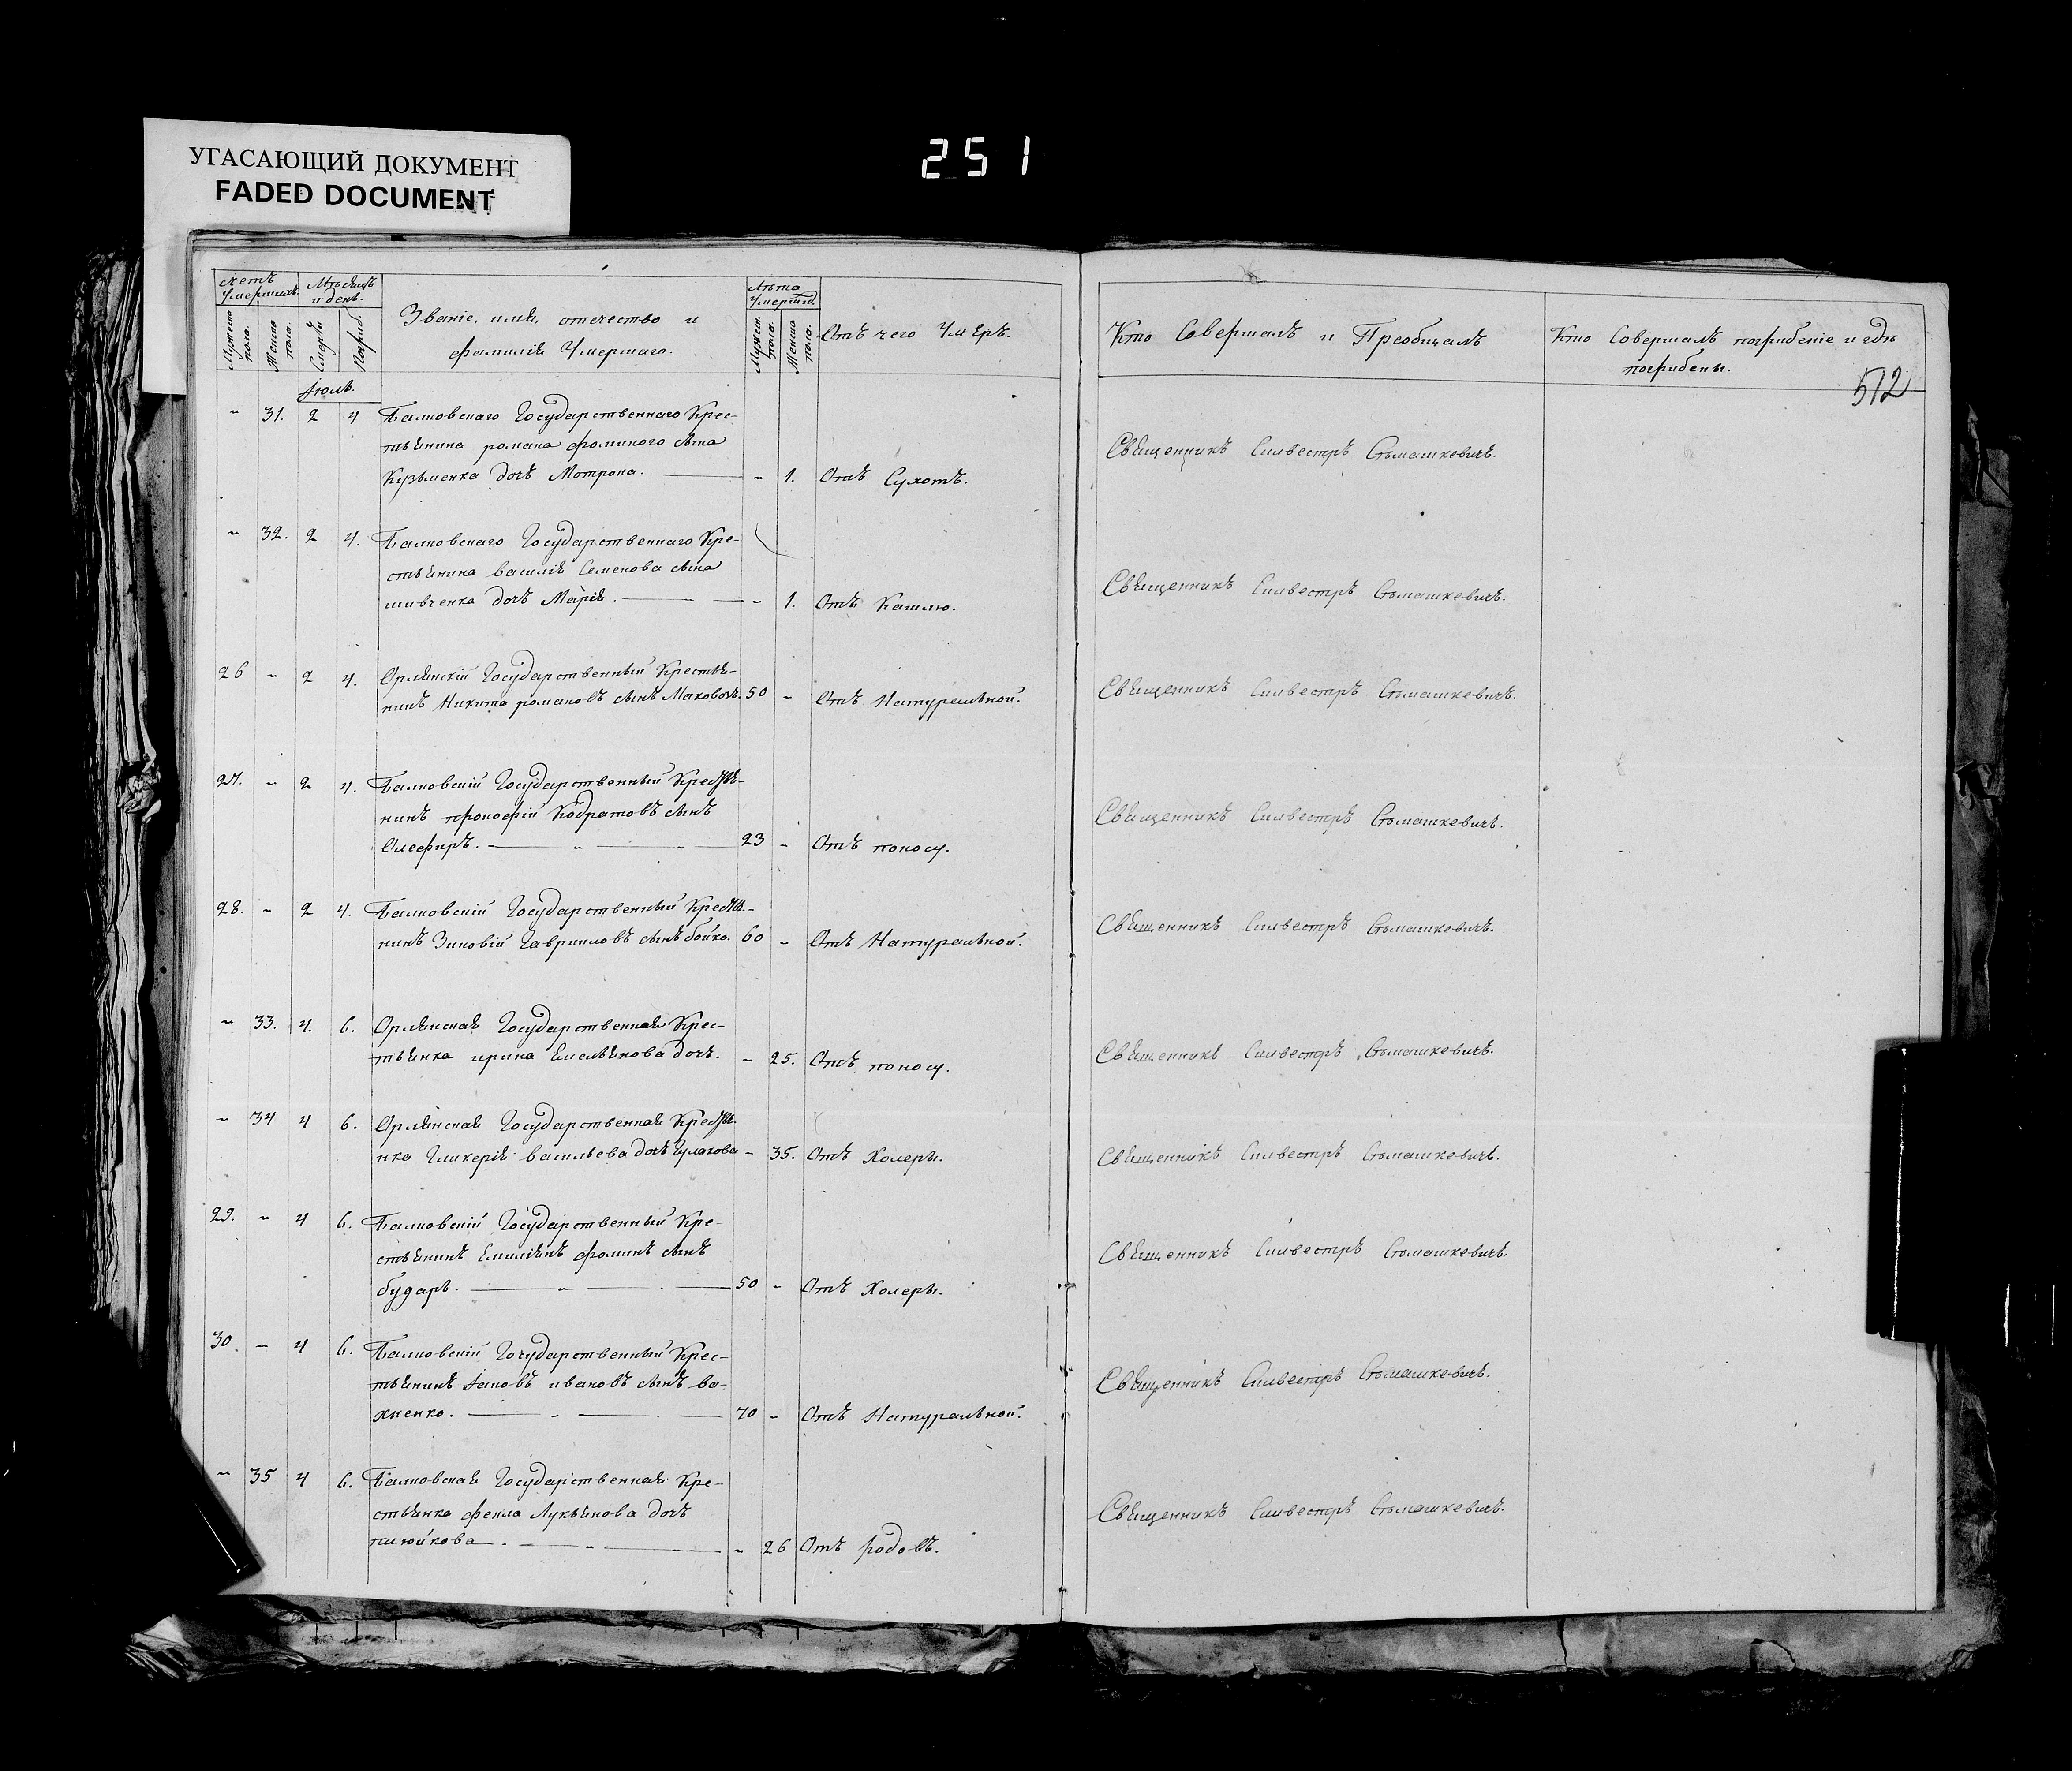 УГАСАЮЩИЙ ДОКУМЕНТ
FADED DOCUMENT
251
512
Счетъ умершихъ.
Мужеска пола.
Женска пола.
Мѣсяцъ и день.
Смерти
Погриб.
Званіе, имя, отечество и
фамилія Умершаго.
Лѣта Умершаго.
Мужеск. пола.
Женска пола.
Отъ чего Умеръ.
Кто Совершалъ и Преобщалъ
Кто Совершалъ погрибеніе и гдѣ
погрибены.
Іюль.
" 31. 2 4 Балковскаго Государственнаго Крес-
тьянина романа фоминого сына
Кузьменка дочь Мотрона. - 1. Отъ Сухотъ.
Священникъ Силвестръ Стомашкевичъ.
" 32. 2 4. Балковскаго Государственнаго Кре-
стьянина василія Семенова сына
шивченка дочь Марія. - 1. Отъ Кашлю.
Священникъ Силвестръ Стомашкевичъ.
26 - 2 4. Орлянскій Государственный Крестья-
нинъ Никита романовъ сынъ Маковозъ. 50 - Отъ Натуральной.
Священникъ Силвестръ Стомашкевичъ.
27. - 2 4. Балковскій Государственный Крестья-
нинъ прокофій Кодратовъ сынъ
Олефиръ. 23 - Отъ поносу.
Священникъ Силвестръ Стомашкевичъ.
28. - 2 4. Балковскій Государственный Крестья-
нинъ Зиновій Гавриловъ сынъ бойко. 60 - Отъ Натуральной.
Священникъ Силвестръ Стомашкевичъ.
" 33. 4. 6. Орлянская Государственная Крес-
тьянка ирина Емельянова дочь. - 25. Отъ поносу.
Священникъ Силвестръ Стомашкевичъ.
" 34 4 6. Орлянская Государственная Крестья-
нка Гликерія васильева дочь Гулакова - 35. Отъ Холеры.
Священникъ Силвестръ Стомашкевичъ.
29. " 4 6. Балковскій Государственный Кре-
стьянинъ Емиліянъ фоминъ сынъ
бударь. 50 - Отъ Холеры.
Священникъ Силвестръ Стомашкевичъ.
30. - 4 6. Балковскій Государственный Крес-
тьянинъ Іаковъ ивановъ сынъ ва-
хненко. 70 - Отъ Натуральной.
Священникъ Силвестръ Стомашкевичъ.
" 35 4 6. Балковская Государственная Кре-
стьянка фекла Лукьянова дочь
26 Отъ родовъ.
Священникъ Силвестръ Стомашкевичъ.